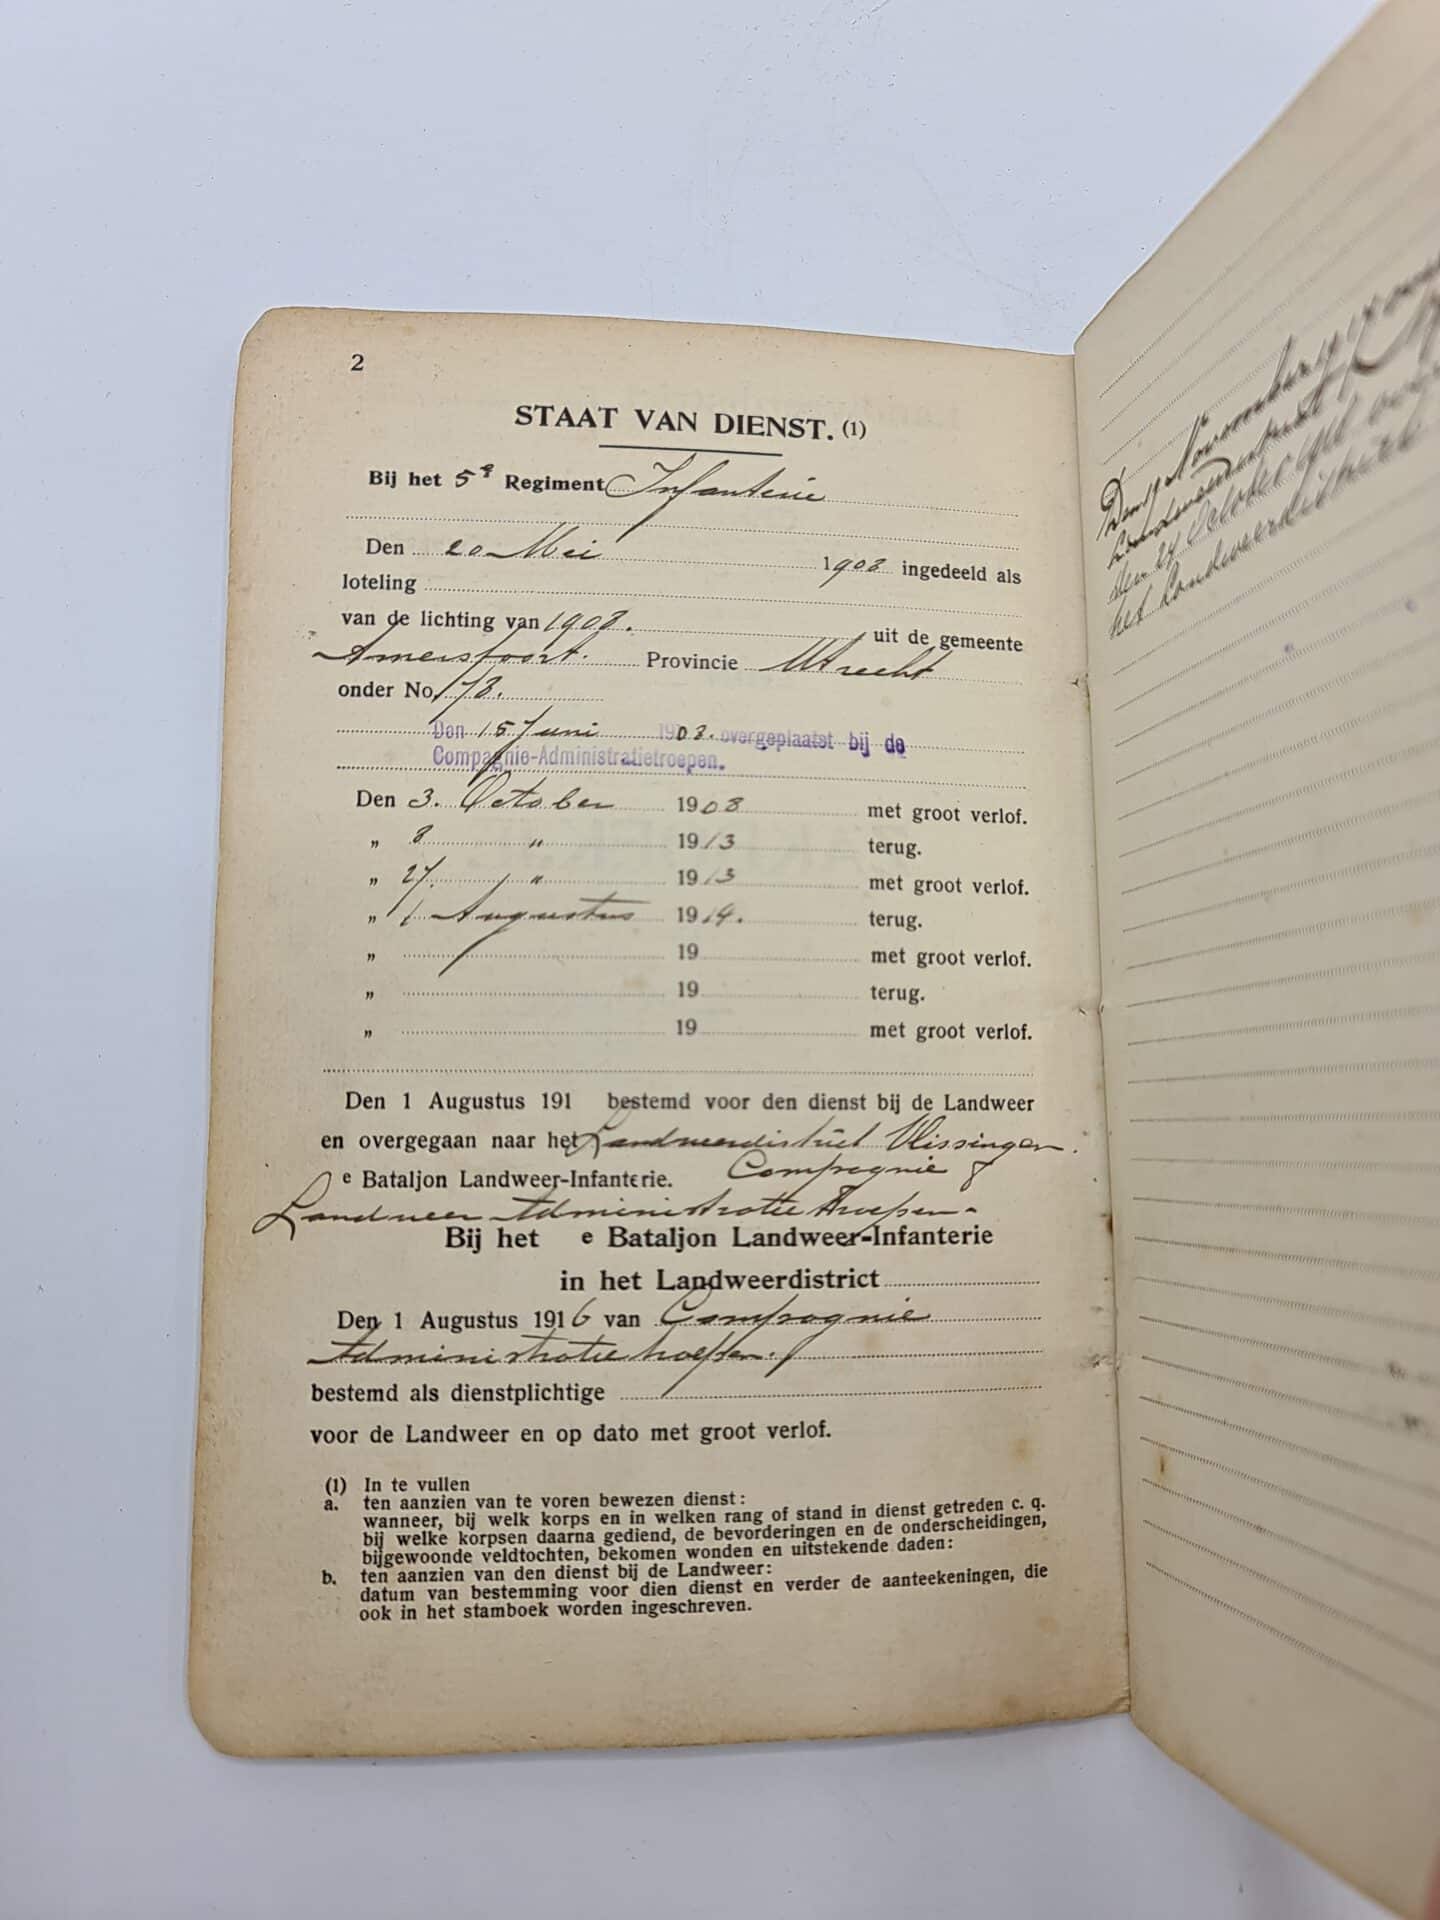 2
STAAT VAN DIENST. (1)
Bij het 5e Regiment Infanterie
Den 20 Mei 1908 ingedeeld als
loteling
van de lichting van 1908. uit de gemeente
Amersfoort. Provincie Utrecht
onder No. 73.
Den 15 Juni 1908. overgeplaatst bij de
Compagnie-Administratietroepen.
Den 3. October 1908 met groot verlof.
„ 8 „ 1913 terug.
„ 27. „ 1913 met groot verlof.
„ 1 Augustus 1914. terug.
„ 19 met groot verlof.
„ 19 terug.
„ 19 met groot verlof.
Den 1 Augustus 191 bestemd voor den dienst bij de Landweer
en overgegaan naar het Landweerdistrict Vlissingen.
e Bataljon Landweer-Infanterie. Compagnie
Landweer Administratie troepen.
Bij het e Bataljon Landweer-Infanterie
in het Landweerdistrict
Den 1 Augustus 1916 van Compagnie
Administratie troepen.
bestemd als dienstplichtige
voor de Landweer en op dato met groot verlof.
(1) In te vullen
a. ten aanzien van te voren bewezen dienst:
wanneer, bij welk korps en in welken rang of stand in dienst getreden c. q.
bij welke korpsen daarna gediend, de bevorderingen en de onderscheidingen,
bijgewoonde veldtochten, bekomen wonden en uitstekende daden:
b. ten aanzien van den dienst bij de Landweer:
datum van bestemming voor dien dienst en verder de aanteekeningen, die
ook in het stamboek worden ingeschreven.
November
Landweerdistrict
October
het Landweerdistrict